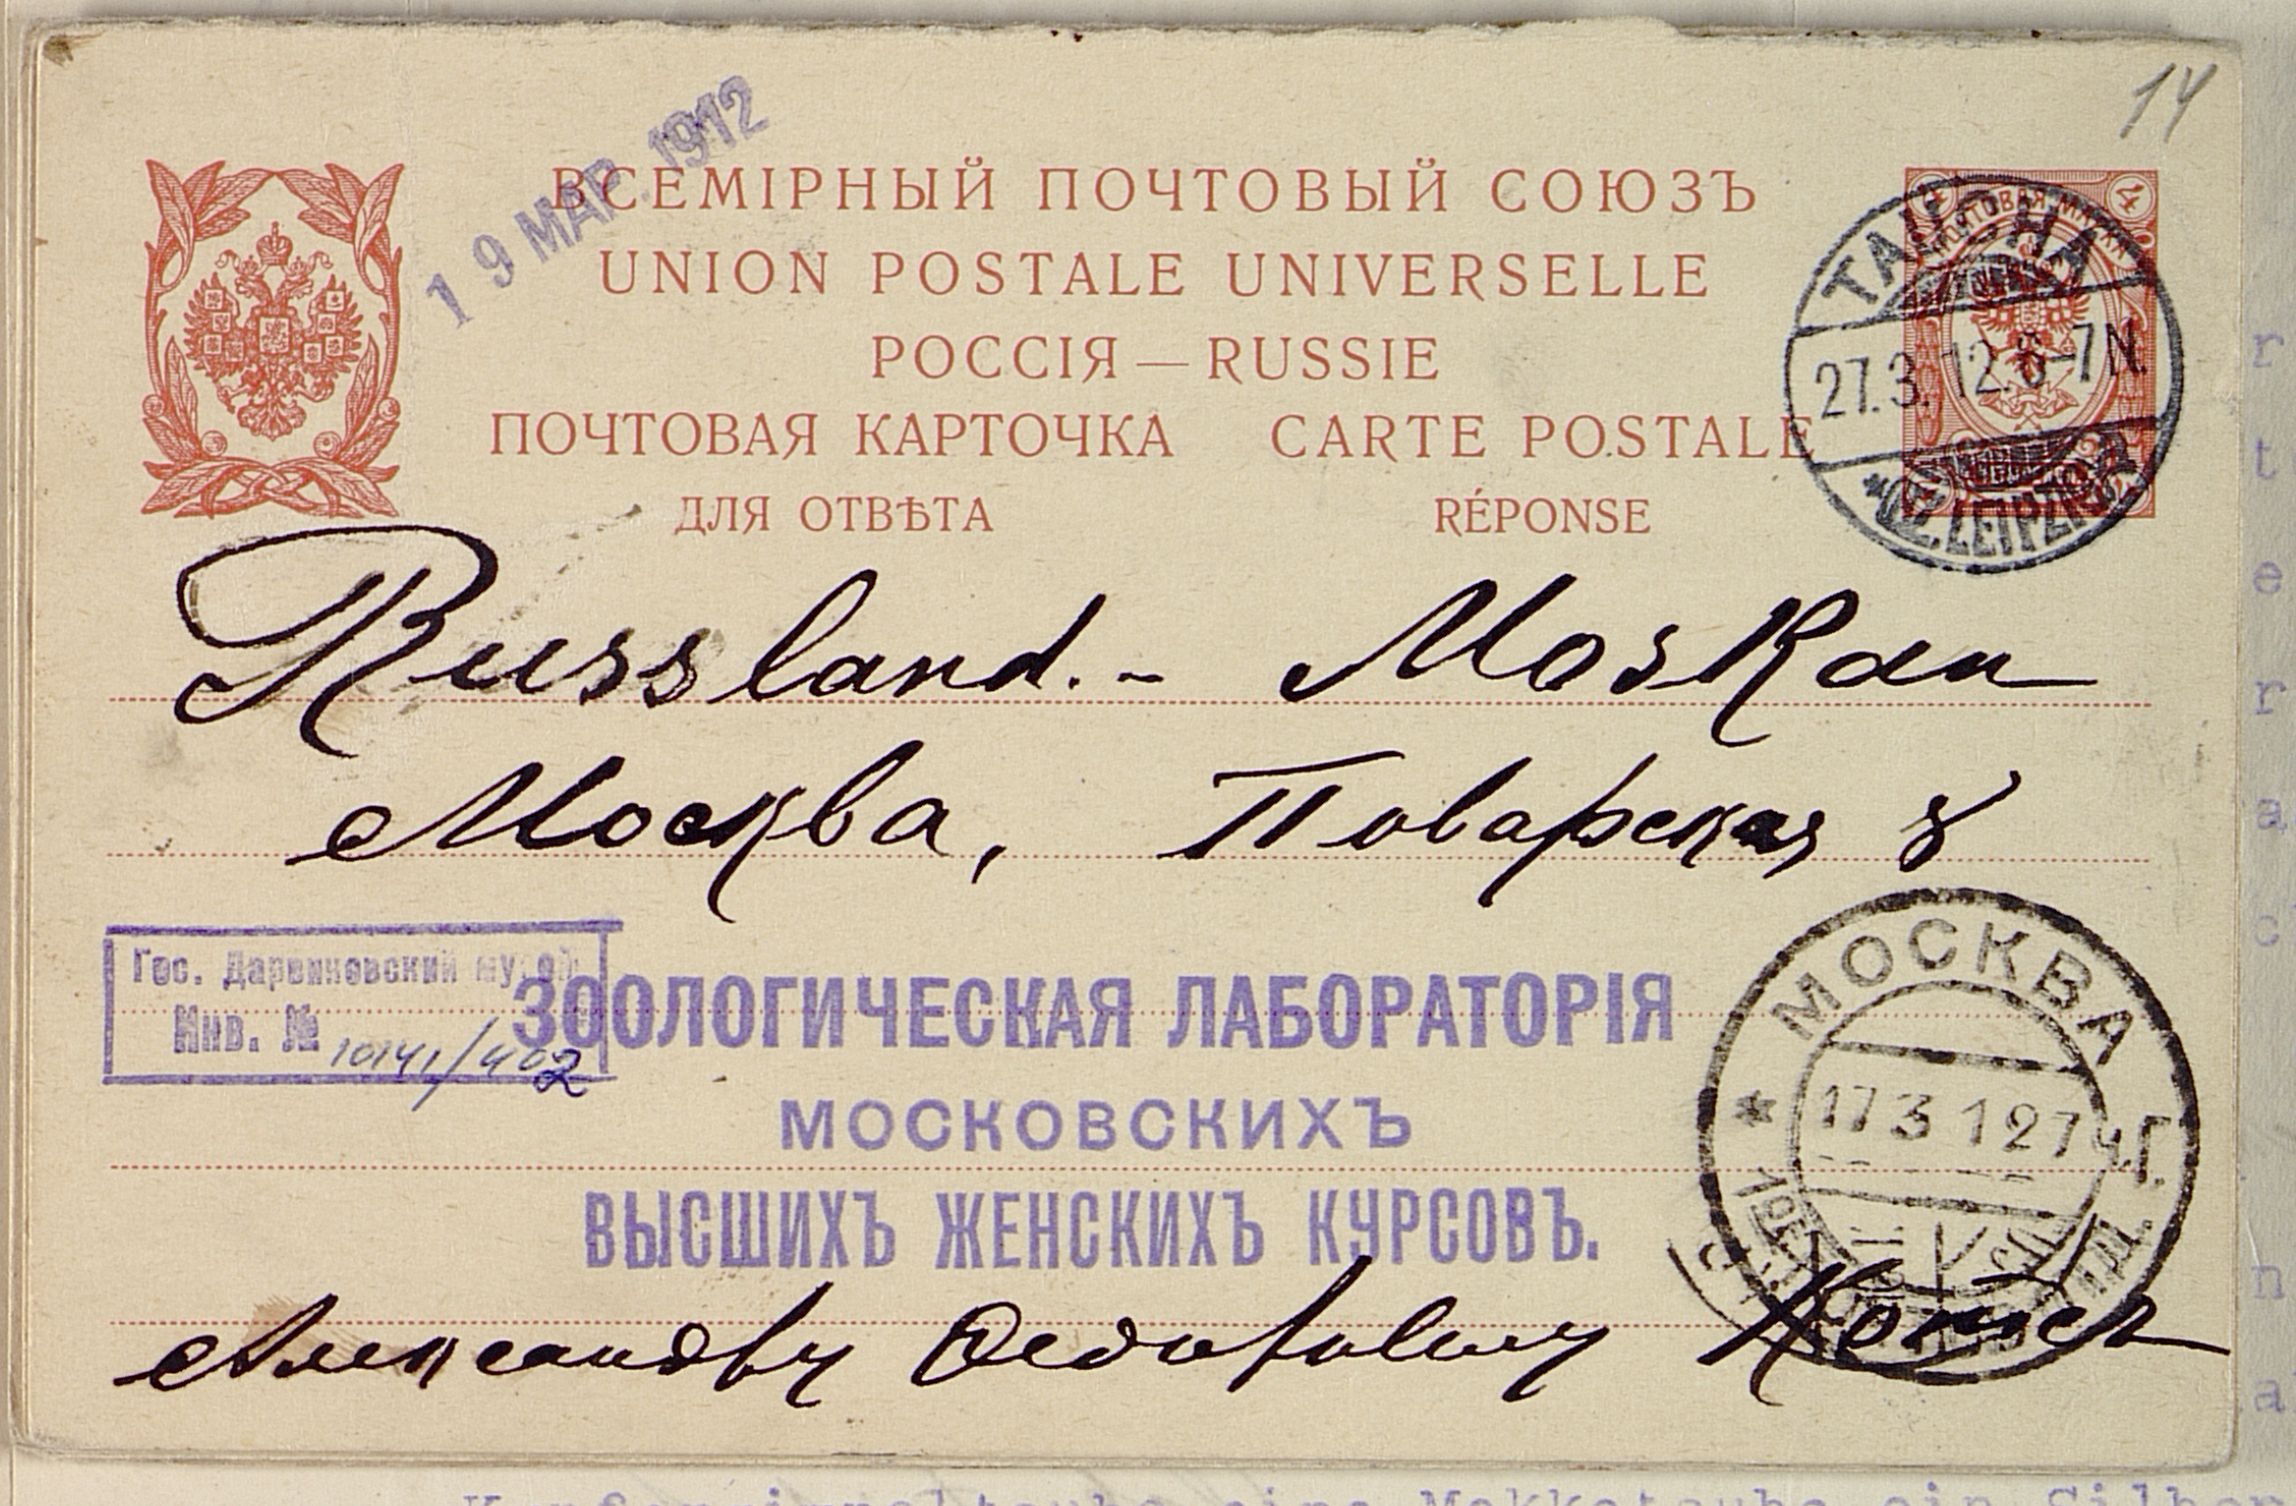 14
19 МАР. 1912
ВСЕМІРНЫЙ ПОЧТОВЫЙ СОЮЗЪ
UNION POSTALE UNIVERSELLE
РОССІЯ — RUSSIE
ПОЧТОВАЯ КАРТОЧКА CARTE POSTALE
ДЛЯ ОТВѢТА RÉPONSE
ПОЧТОВАЯ МАРКА
4
TAUCHA
27.3.12. 6-7N.
*(BZ. LEIPZIG)
Russland. - Moskau
Москва, Поварская 8
Гос. Дарвиновский музей
Инв. № 10141/402
ЗООЛОГИЧЕСКАЯ ЛАБОРАТОРІЯ
МОСКОВСКИХЪ
ВЫСШИХЪ ЖЕНСКИХЪ КУРСОВЪ.
МОСКВА
17 3 12 7
Александру Федоровичу Котсъ